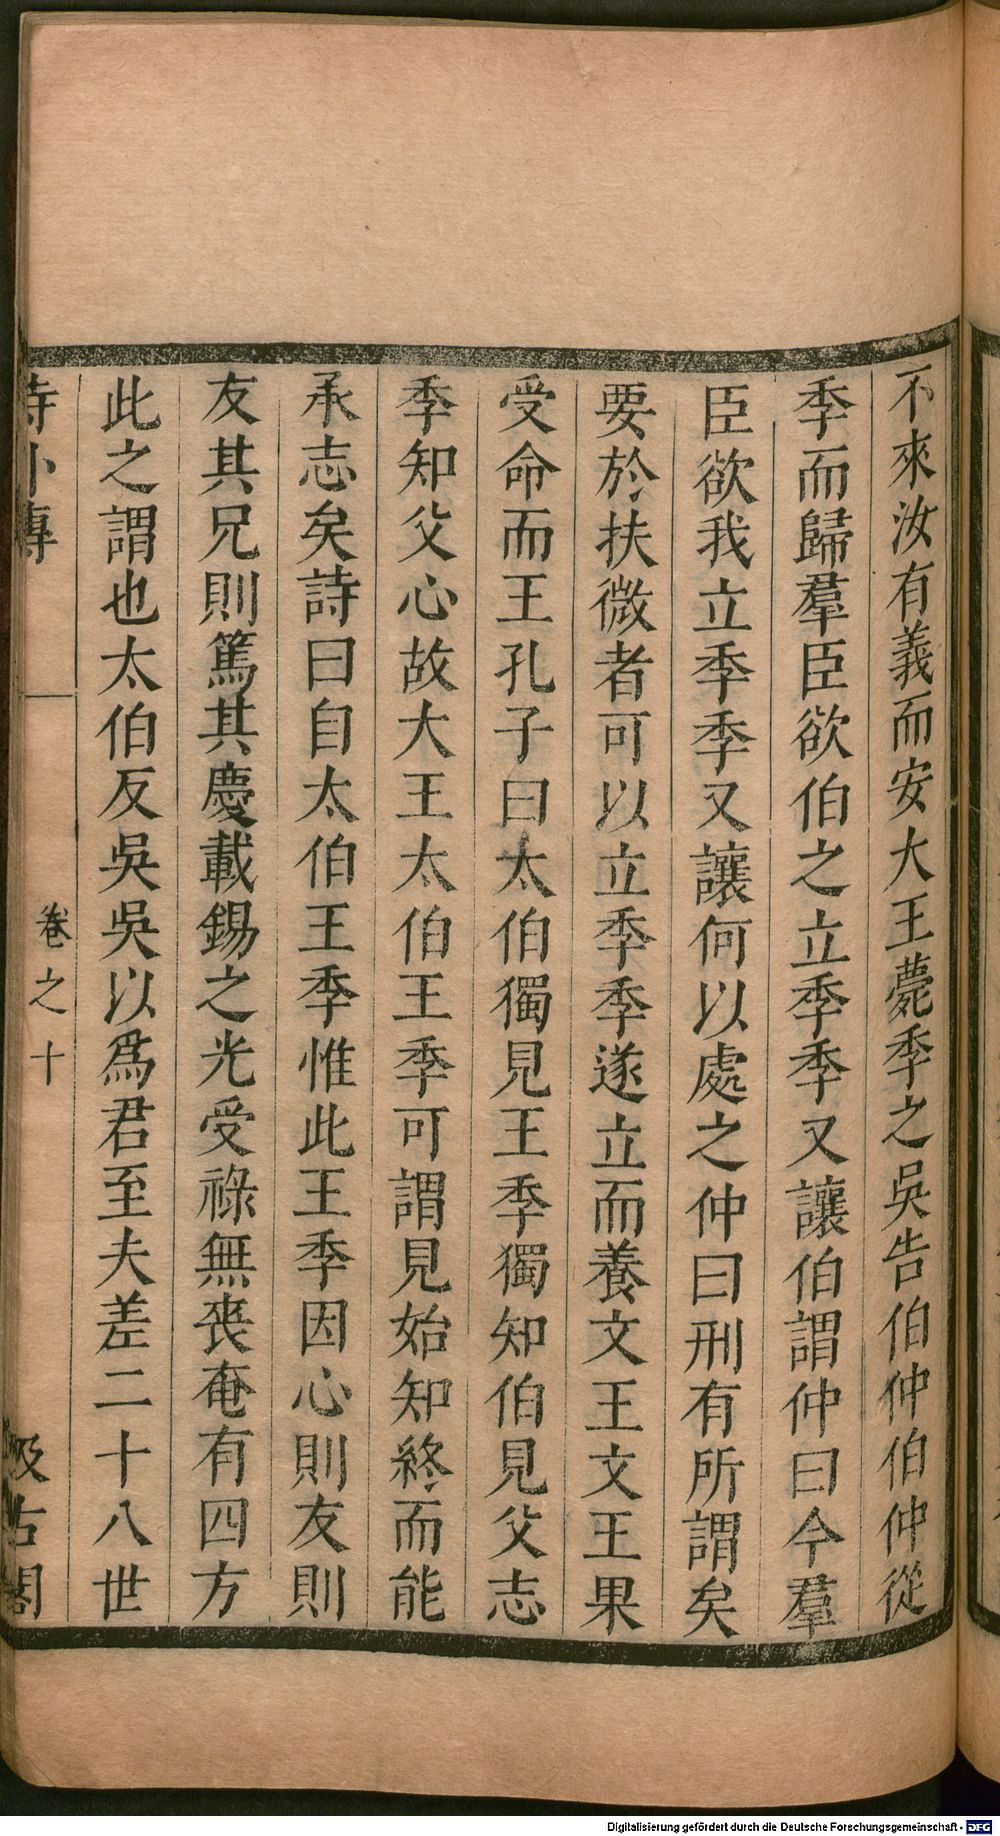 不來汝有義而安大王薨季之吳告伯仲伯仲從
季而歸羣臣欲伯之立季季又讓伯謂仲曰今羣
臣欲我立季季又讓何以處之仲曰刑有所謂矣
要於扶微者可以立季季遂立而養文王文王果
受命而王孔子曰太伯獨見王季獨知伯見父志
季知父心故大王太伯王季可謂見始知終而能
承志矣詩曰自太伯王季惟此王季因心則友則
友其兄則篤其慶載錫之光受祿無喪奄有四方
此之謂也太伯反吳吳以爲君至夫差二十八世
詩外傳 卷之十 汲古閣
Digitalisierung gefördert durch die Deutsche Forschungsgemeinschaft - DFG